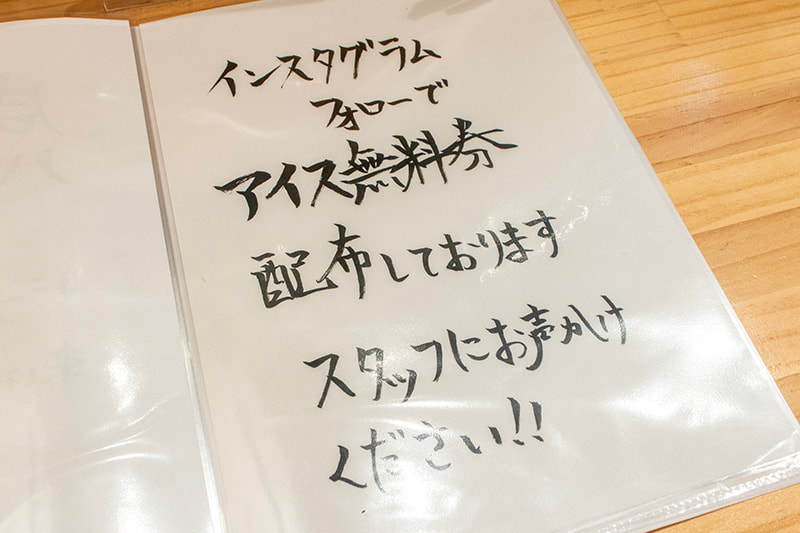 インスタグラム
フォローで
アイス無料券
配布しております
スタッフにお声かけ
ください!!